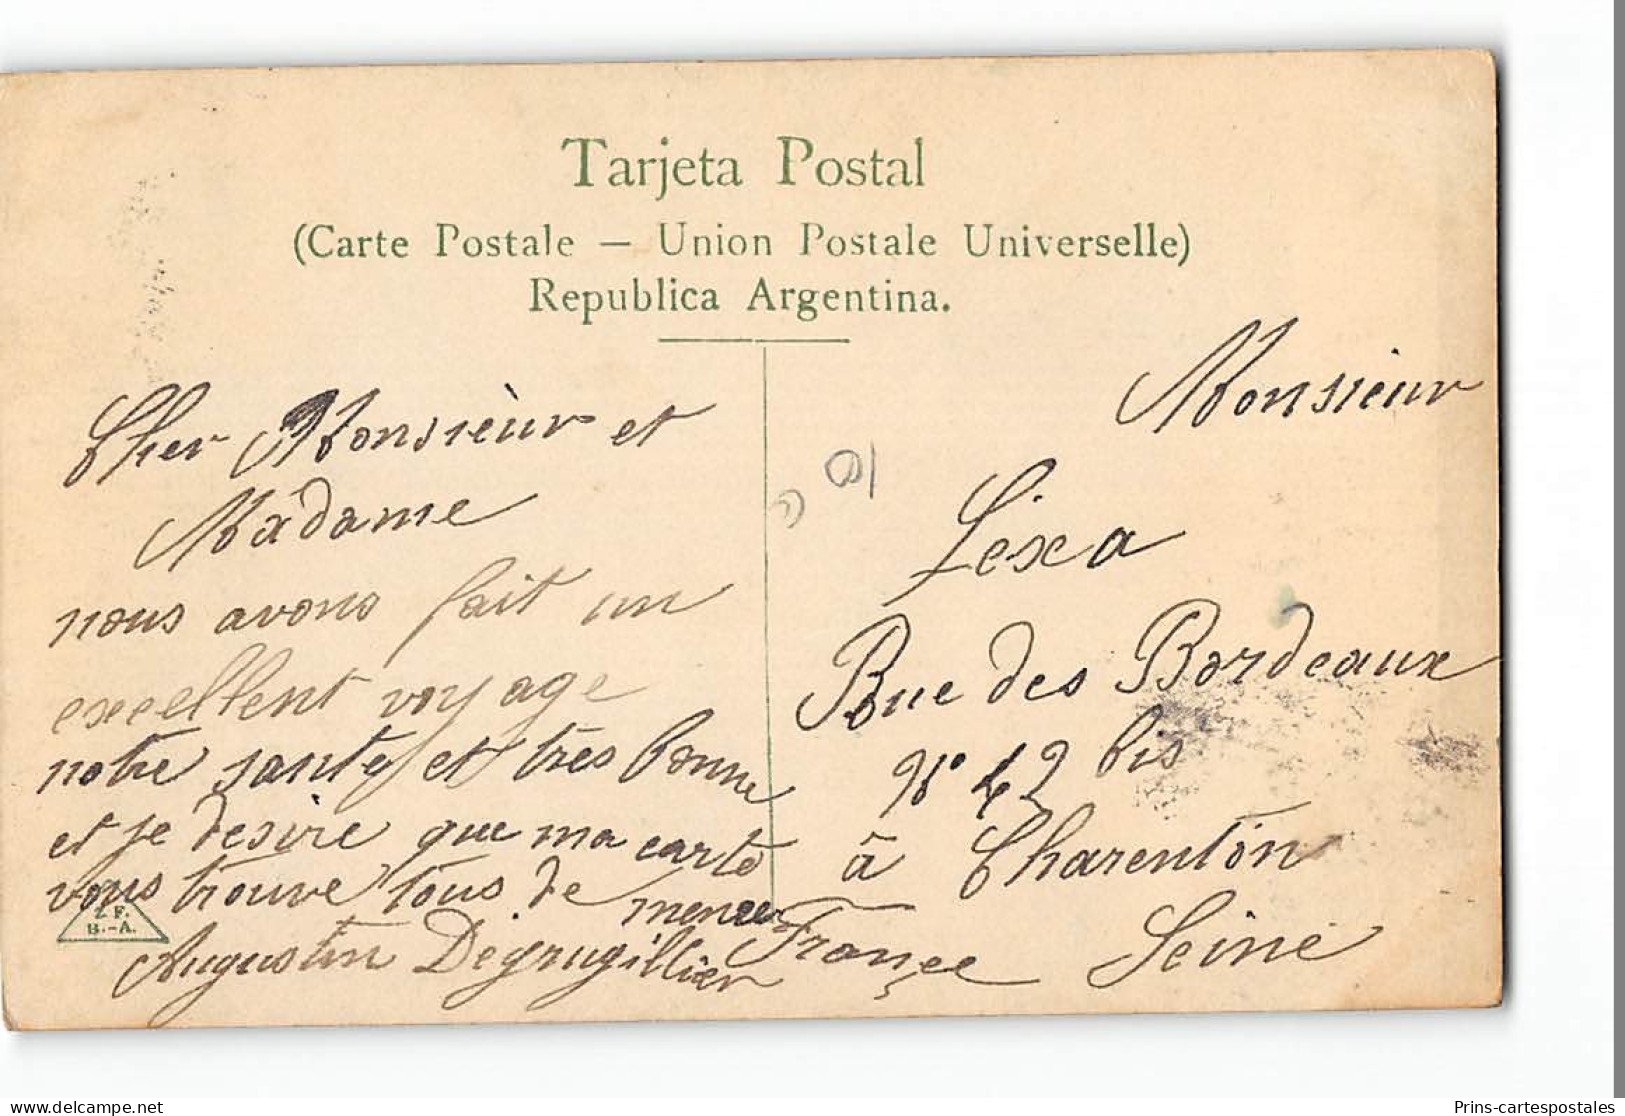 Tarjeta Postal
(Carte Postale — Union Postale Universelle)
Republica Argentina.
Cher Monsièur et
Madame
nous avons fait un
excellent voyage
notre santé et très bonne
et je desire que ma carte
vous trouve tous de meme
Augustin Degrugillier
Z F.
B.-A.
Monsieur
Lexa
Rue des Bordeaux
N° 42 bis
à Charenton
Seine
France
delcampe.net
Prins-cartespostales